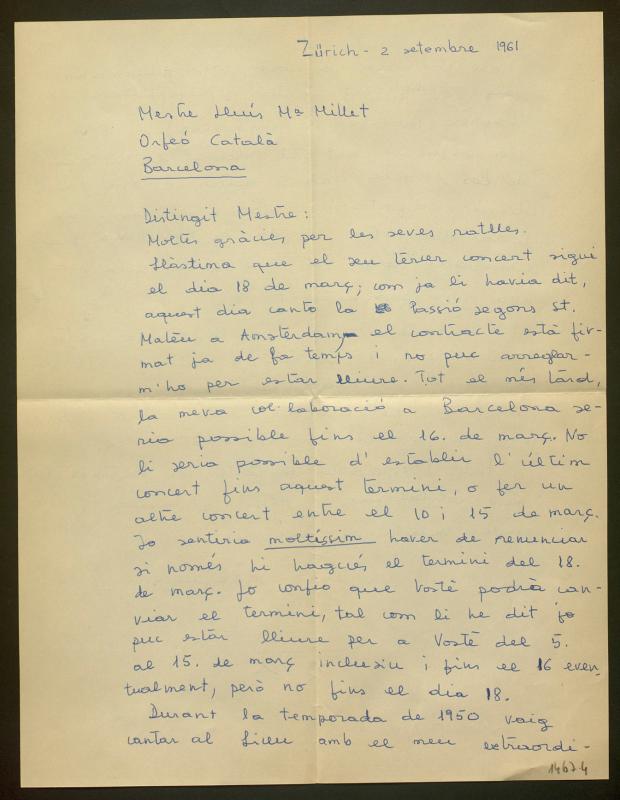 Zürich - 2 setembre 1961
Mestre Lluís Mª Millet
Orfeó Català
Barcelona
Distingit Mestre:
Moltes gràcies per les seves ratlles.
Llàstima que el seu tercer concert sigui
el dia 18 de març; com ja li havia dit,
aquest dia canto la Passió segons St.
Mateu a Amsterdam, el contracte està fir-
mat ja de fa temps i no puc arreglar-
m'ho per estar lliure. Tot el més tàrd,
la meva col·laboració a Barcelona se-
ria possible fins el 16. de març. No
li seria possible d'establir l'últim
concert fins aquest termini, o fer un
altre concert entre el 10 i 15 de març.
Jo sentiria moltíssim haver de renunciar
si només hi hagués el termini del 18.
de març. Jo confio que Vostè podrà can-
viar el termini, tal com li he dit jo
puc estàr lliure per a Vostè del 5.
al 15. de març inclusiu i fins el 16 even-
tualment, però no fins el dia 18.
Durant la temporada de 1950 vaig
cantar al Liceu amb el meu extraordi-
1467.4